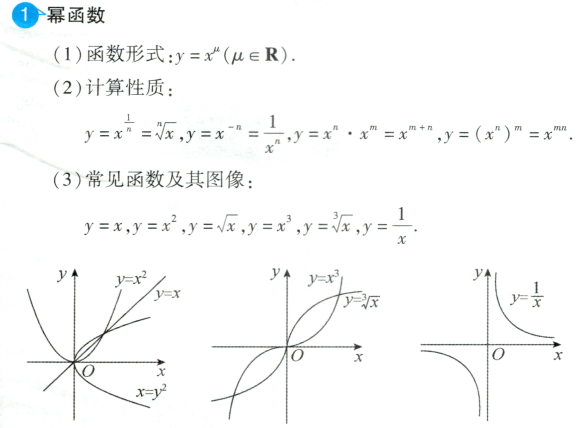 1 幂函数
(1)函数形式:y = x^μ (μ ∈ R).
(2)计算性质:
y = x^{\frac{1}{n}} = \sqrt[n]{x}, y = x^{-n} = \frac{1}{x^n}, y = x^n · x^m = x^{m+n}, y = (x^n)^m = x^{mn}.
(3)常见函数及其图像:
y = x, y = x^2, y = \sqrt{x}, y = x^3, y = \sqrt[3]{x}, y = \frac{1}{x}.
y y=x^2 y=x O x x=y^2
y y=x^3 y=\sqrt[3]{x} O x
y y=\frac{1}{x} O x